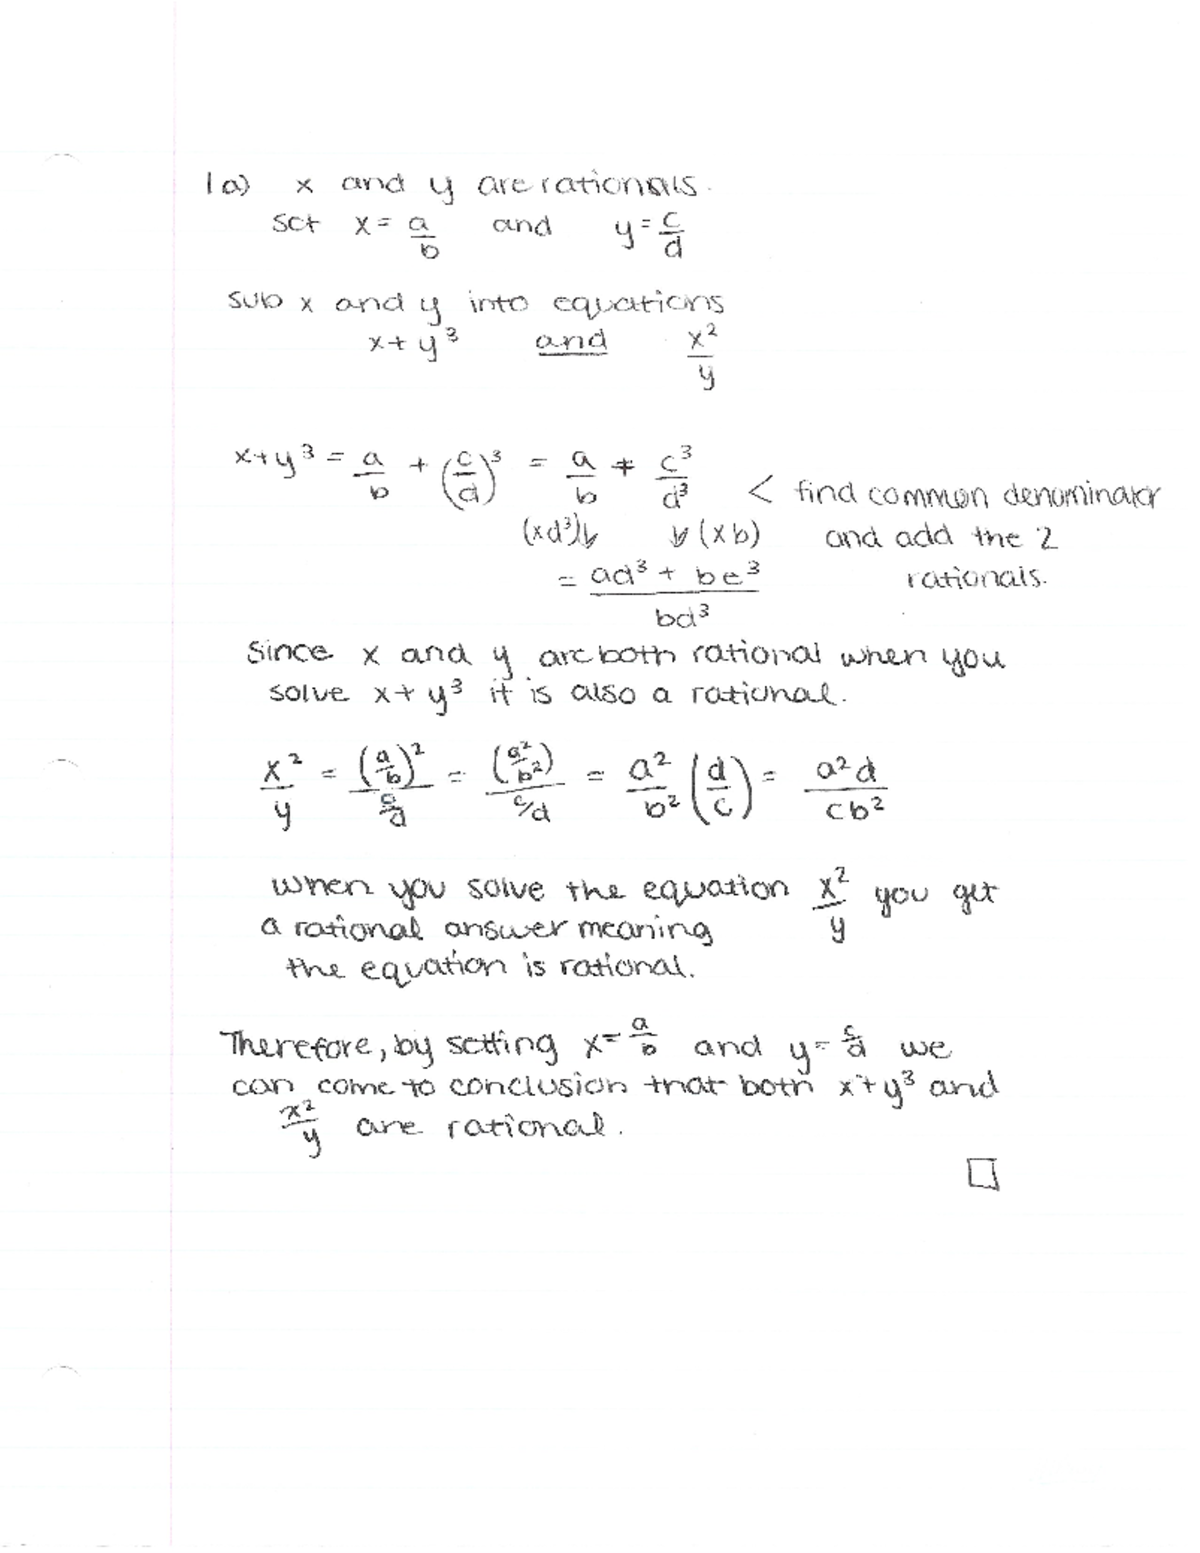 1a) x and y are rationals.
set x = a/b and y = c/d
sub x and y into equations
x + y³ and x²/y
x+y³ = a/b + (c/d)³ = a/b + c³/d³ < find common denominator
(xd³)↓ ↓(xb) and add the 2
= ad³ + bc³/bd³ rationals.
Since x and y are both rational when you
solve x + y³ it is also a rational.
x²/y = (a/b)²/(c/d) = (a²/b²)/(c/d) = a²/b² (d/c) = a²d/cb²
when you solve the equation x²/y you get
a rational answer meaning
the equation is rational.
Therefore, by setting x = a/b and y = c/d we
can come to conclusion that both x+y³ and
x²/y are rational.
□